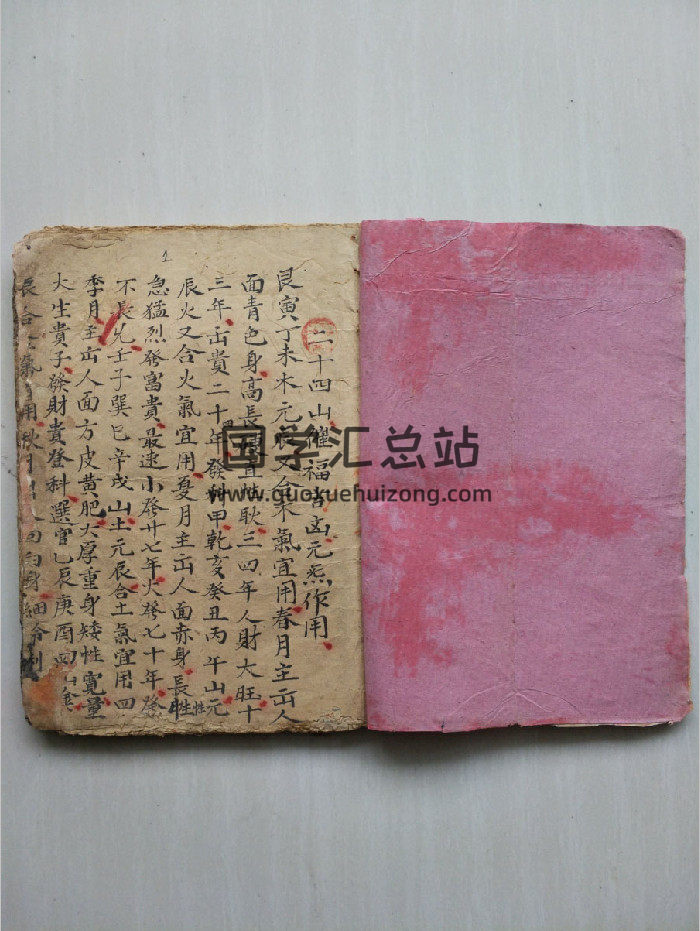 1
二十四山催福 元炁作用
艮寅丁未木元辰又合木氣宜用春月主出人
面青色身高長 直性耿三四年人財大旺十
三年出貴二十年 發科甲乾亥癸丑丙午山元
辰火又合火氣宜用夏月主出人面赤身長性
急猛烈發富貴最速小發廿七年大發七十年發
不長兌壬子巽巳辛戌山土元辰合土氣宜用四
季月主出人面方皮黃肥大厚重身矮性寬量
大生貴子發財貴登科選官乙辰庚酉 山金
辰合金氣 用秋月 人面 身細
国学汇总站
www.guoxuehuizong.com